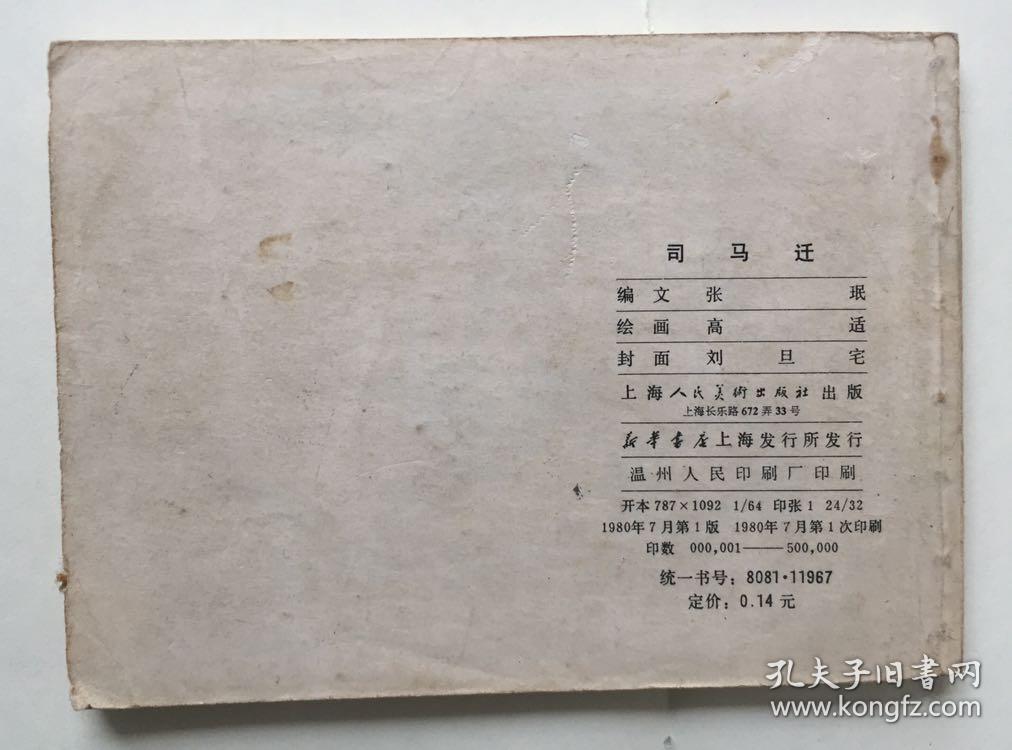 司马迁
编文 张珉
绘画 高适
封面 刘旦宅
上海人民美術出版社出版
上海长乐路672弄33号
新华书店上海发行所发行
温州人民印刷厂印刷
开本 787×1092 1/64 印张 1 24/32
1980年7月第1版 1980年7月第1次印刷
印数 000,001——500,000
统一书号：8081·11967
定价：0.14元
孔夫子旧書网
www.kongfz.com